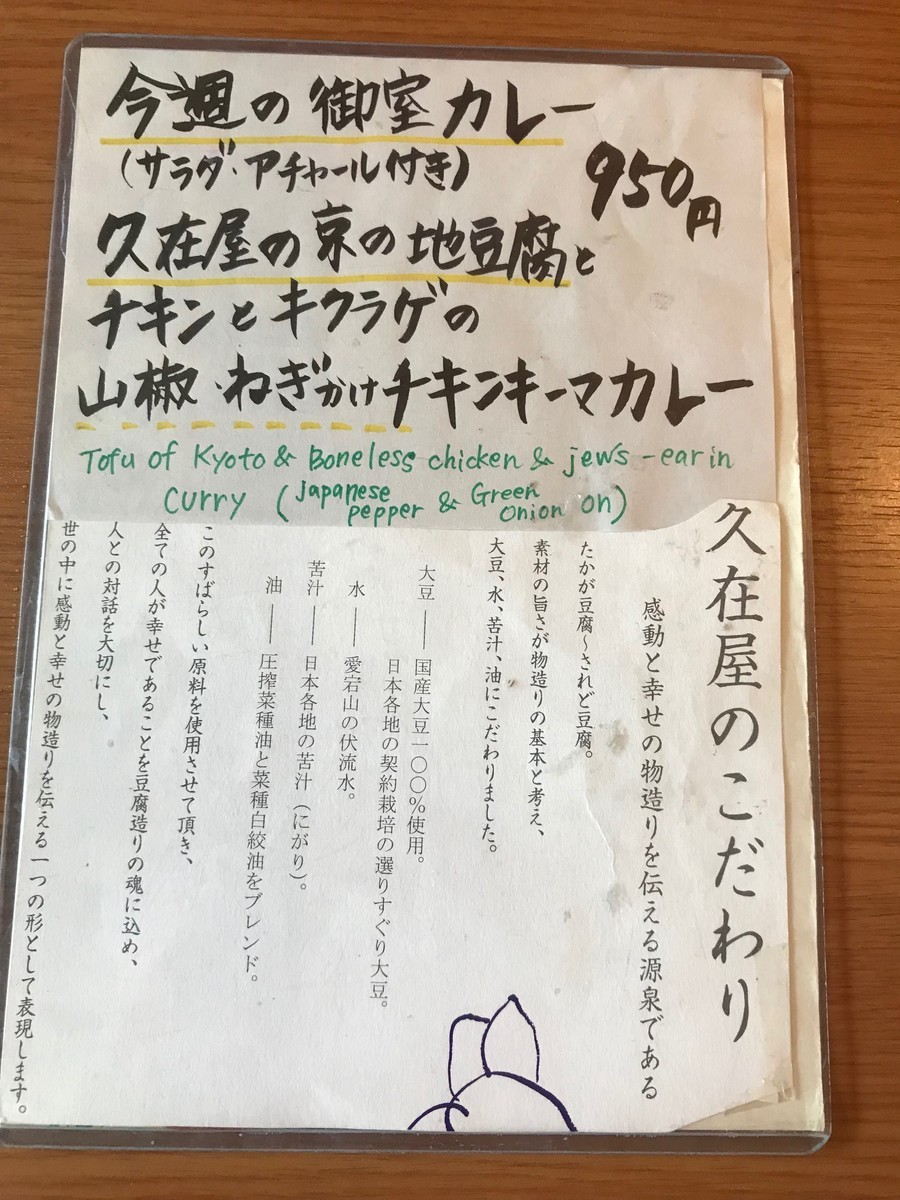 今週の御室カレー
（サラダ・アチャール付き）
950円
久在屋の京の地豆腐と
チキンとキクラゲの
山椒・ねぎかけチキンキーマカレー
Tofu of Kyoto & Boneless chicken & jews-ear in
curry (Japanese pepper & Green onion on)
久在屋のこだわり
感動と幸せの物造りを伝える源泉である
たかが豆腐～されど豆腐。
素材の旨さが物造りの基本と考え、
大豆、水、苦汁、油にこだわりました。
大豆――国産大豆一〇〇％使用。
日本各地の契約栽培の選りすぐり大豆。
水――愛宕山の伏流水。
苦汁――日本各地の苦汁（にがり）。
油――圧搾菜種油と菜種白絞油をブレンド。
このすばらしい原料を使用させて頂き、
全ての人が幸せであることを豆腐造りの魂に込め、
人との対話を大切にし、
世の中に感動と幸せの物造りを伝える一つの形として表現します。